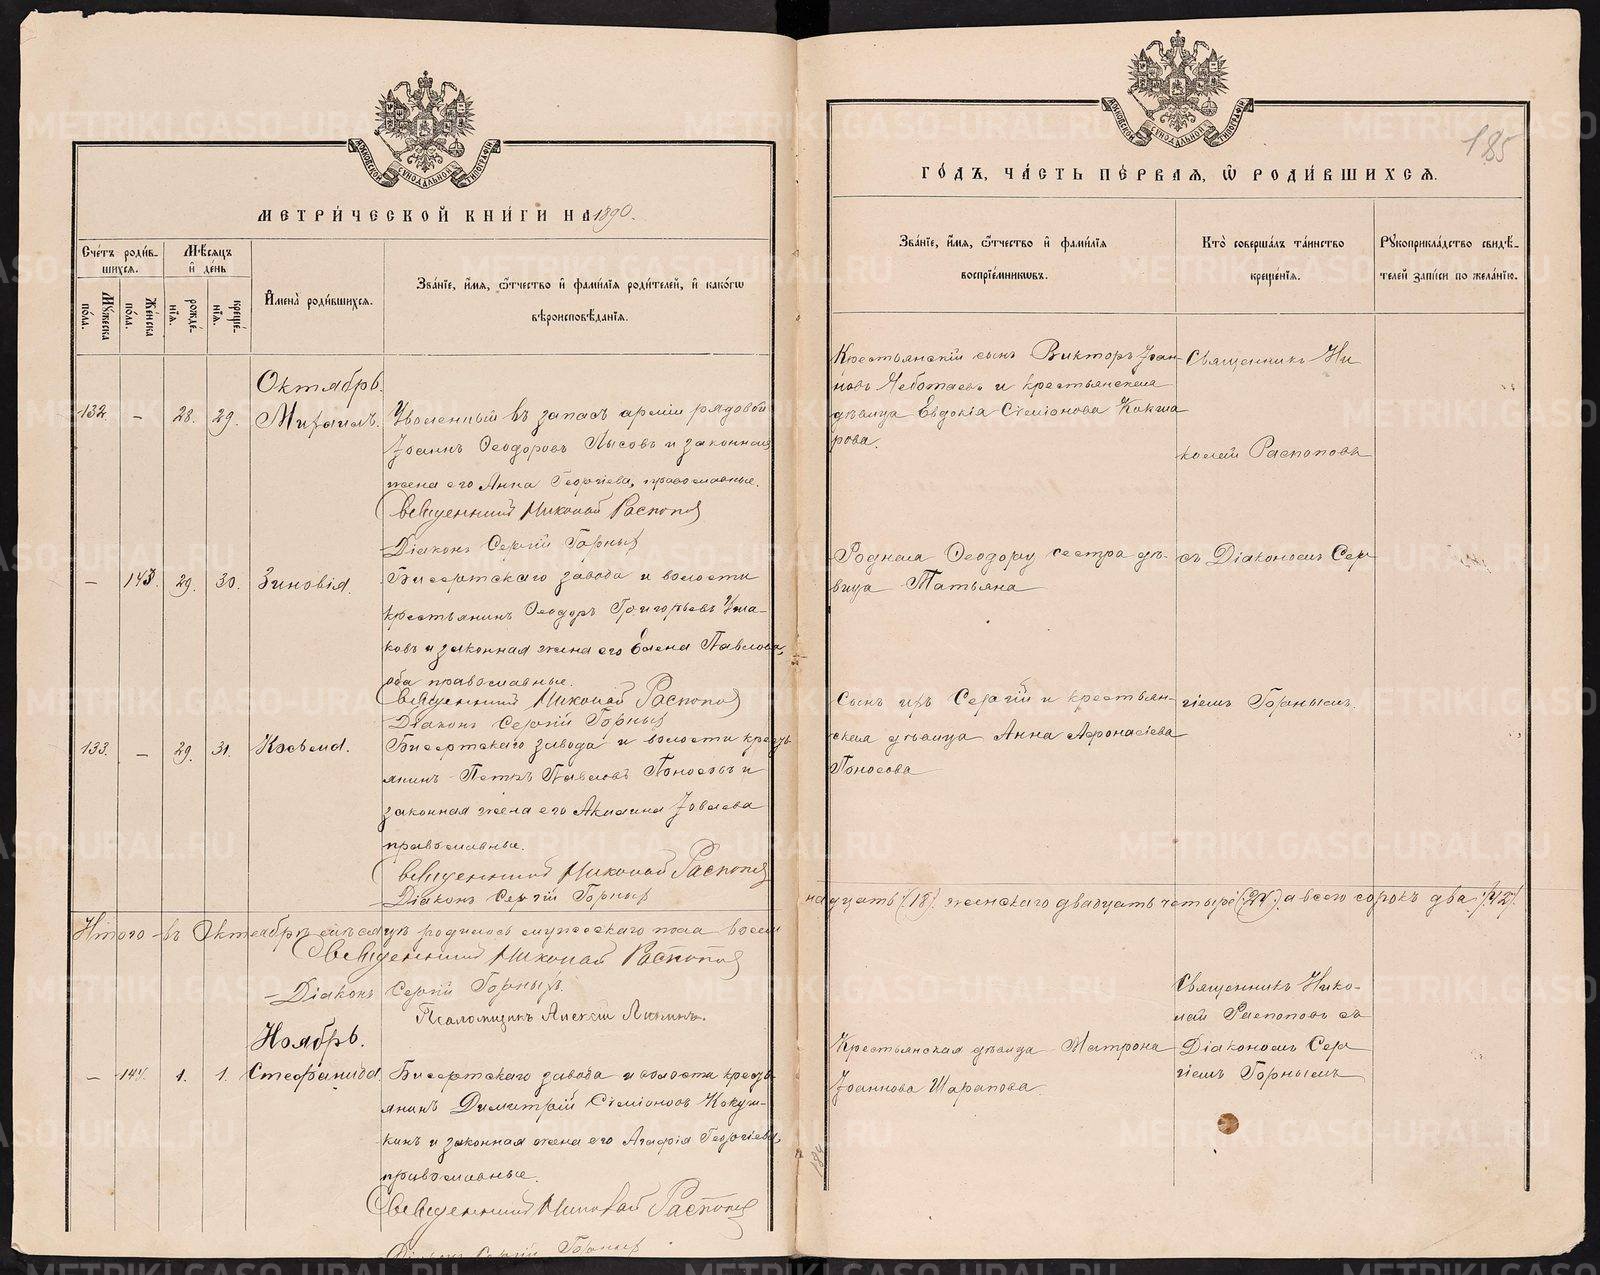 МЕТРИ́ЧЕСКОЙ КНИ́ГИ НА 1890.
Сче́тъ роди́в-
шихся.
Мѣ́сяцъ
и҆ де́нь
Мꙋ́жеска
по́ла.
Же́нска
по́ла.
рожде́-
нїѧ.
креще́-
нїѧ.
И҆мена̀ роди́вшихсѧ.
Зва́нїе, и҆́мѧ, ѻ҆́тчество и҆ фами́лїѧ роди́телей, и҆ како́гѡ
вѣроисповѣ́данїѧ.
Октябрь.
132. – 28. 29. Михаилъ. Уволенный въ запасъ армiи рядовой
Iоаннъ Ѳеодоровъ Лысовъ и законная
жена его Анна Георгiева, православные.
Священникъ Николай Распопов
Дiаконъ Сергiй Горныхъ
– 143. 29. 30. Зиновiя. Бисертскаго завода и волости
крестьянинъ Ѳеодоръ Григорьевъ Уша-
ковъ и законная жена его Елена Павлова,
оба православные.
Священникъ Николай Распопов
Дiаконъ Сергiй Горныхъ
133. – 29. 31. Косьма. Бисертскаго завода и волости кресть
янинъ Петръ Павловъ Поносовъ и
законная жена его Акилина Iовлева
православные.
Священникъ Николай Распопов
Дiаконъ Сергiй Горныхъ
Итого въ Октябрѣ мѣсяцѣ родилось мужескаго пола восем
Священникъ Николай Распопов
Дiаконъ Сергiй Горныхъ.
Псаломщикъ Алексiй
Ноябрь.
– 144. 1. 1. Стефанида. Бисертскаго завода и волости кресть
янинъ Димитрiй Симiоновъ Кокуш-
кинъ и законная жена его Агафiя Георгiева,
православные.
Священникъ Николай Распопов
Дiаконъ Сергiй Горныхъ
185
ГО́ДЪ, ЧА́СТЬ ПЕ́РВАЯ, Ѡ҆ РОДИ́ВШИХСѦ.
Зва́нїе, и҆́мѧ, ѻ҆́тчество и҆ фами́лїѧ
воспрїе́мникѡвъ.
Кто̀ соверша́лъ та́инство
креще́нїѧ.
Рꙋкоприкла́дство свидѣ́-
телей за́писи по жела́нїю.
Крестьянскiй сынъ Викторъ Iоан-
новъ Чеботаевъ и крестьянская
дѣвица Евдокiя Симiонова Кокша
рова.
Священникъ Ни
колай Распоповъ
Родная Ѳеодору сестра дѣ-
вица Татьяна
съ Дiакономъ Сер
Сынъ ихъ Сергiй и крестьян-
ская дѣвица Анна Афонасiева
Поносова
гiемъ Горнымъ.
надцать (18). женскаго двадцать четыре (24). а всего сорокъ два (42).
Священникъ Нико-
лай Распоповъ съ
Дiакономъ Сер
гiемъ Горнымъ
Крестьянская дѣвица Матрона
Iоаннова Шарапова.
184
METRIKI.GASO-URAL.RU